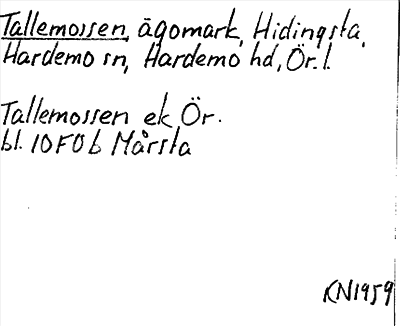 Tallemossen, ägomark, Hidingsta,
Hardemo sn, Hardemo hd, Ör. l.
Tallemossen ek Ör.
bl. 10F0b Mårsta
KN1959